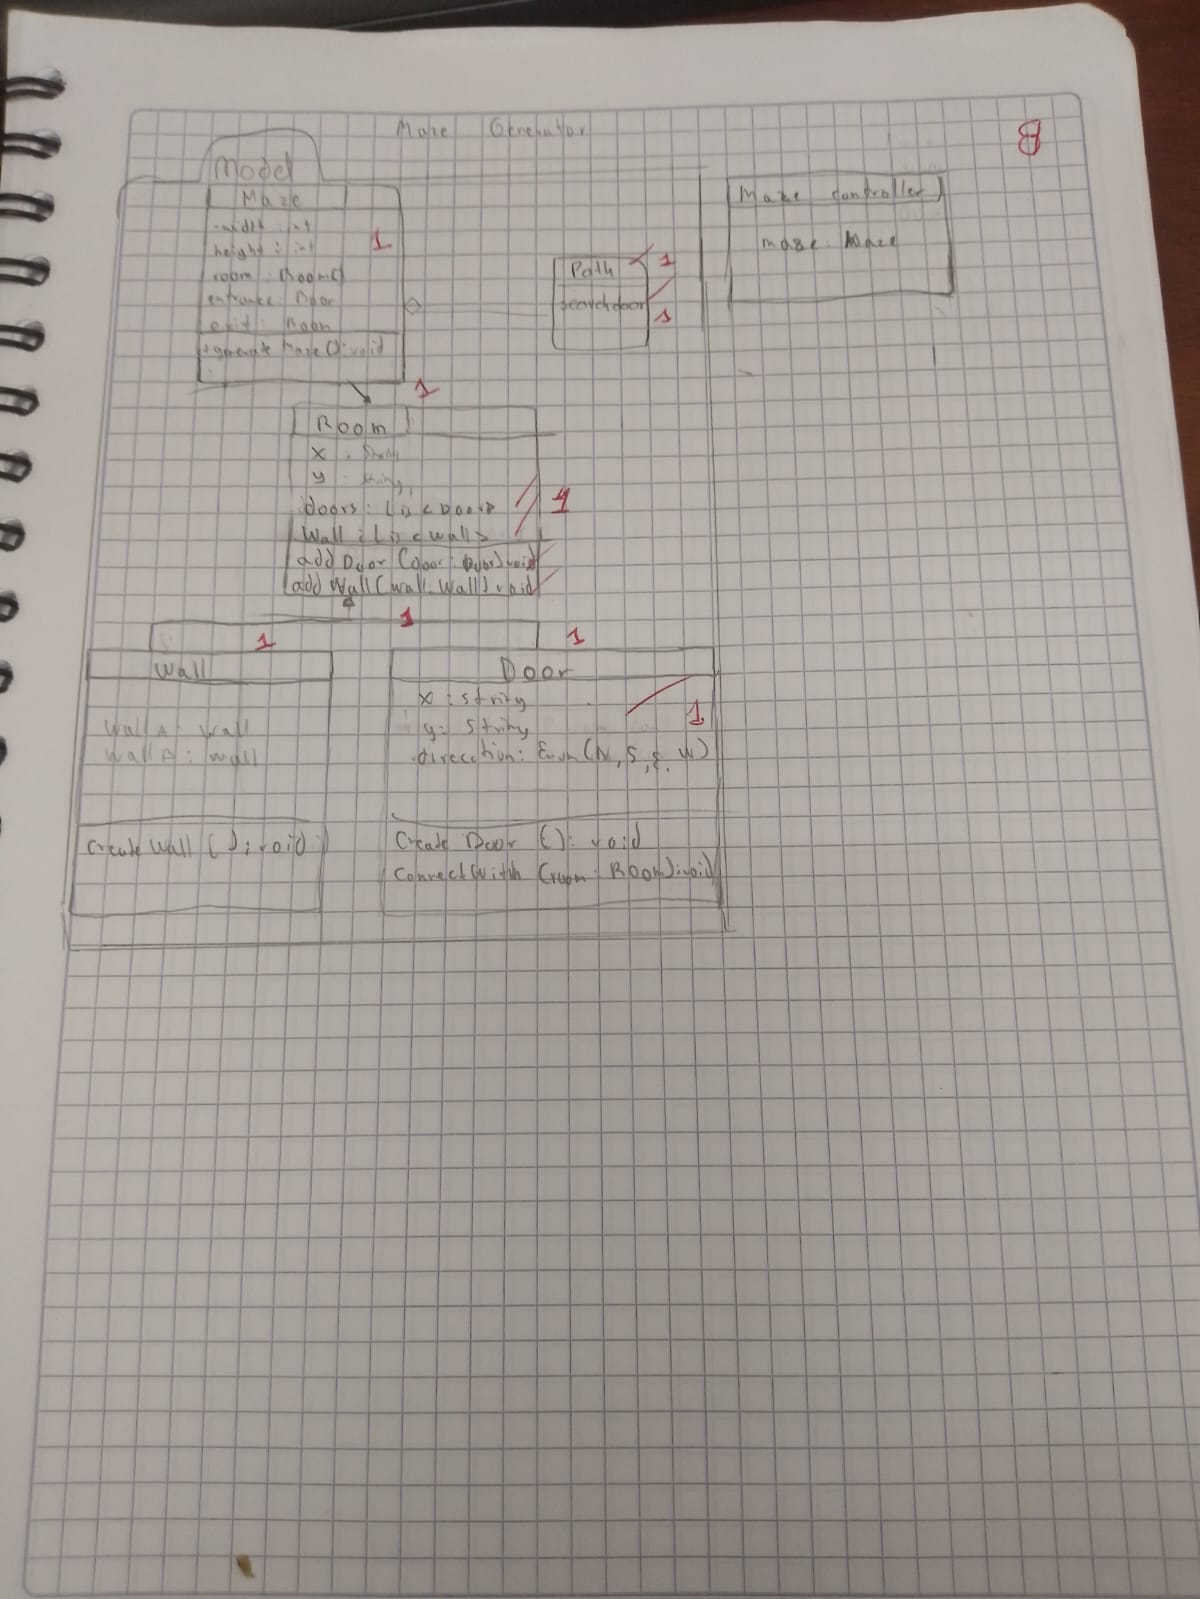 Maze Generator
B
Model
Maze
-width: int
height: int
room: Room[]
entrance: Door
exit: Room
+generate Maze(): void
1
Path
searchdoor
1
1
Maze controller
maze: Maze
1
Room
x : String
y : string
doors: Lis<Door>
Wall: Lis<wall>
1
add Door (door: Door): void
add Wall (wall: Wall): void
1
1
1
Wall
wall A: wall
wall B: wall
Create Wall (): void
Door
x : string
y: string
1
direcction: Enum (N, S, E, W)
Create Door (): void
ConnectWith (room: Room): void